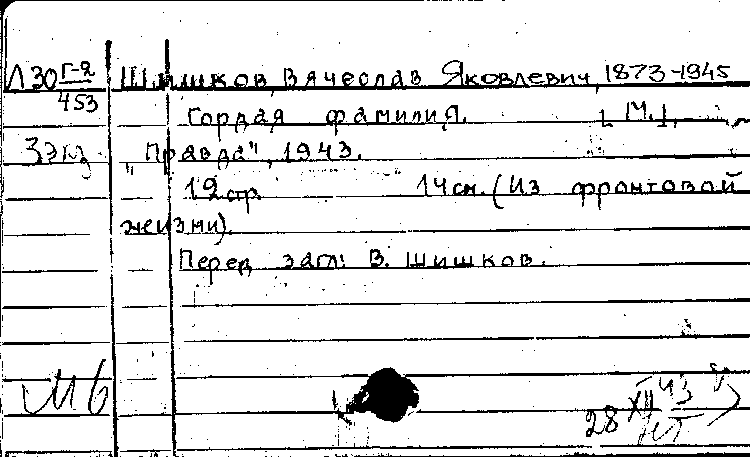 Л 30 Г-2 Шишков, Вячеслав Яковлевич, 1873-1945
453
Гордая фамилия. [М.],
3 экз „Правда", 1943.
12 стр. 14 см. (Из фронтовой
жизни).
Перед загл: В. Шишков.
М6
28 XII 43